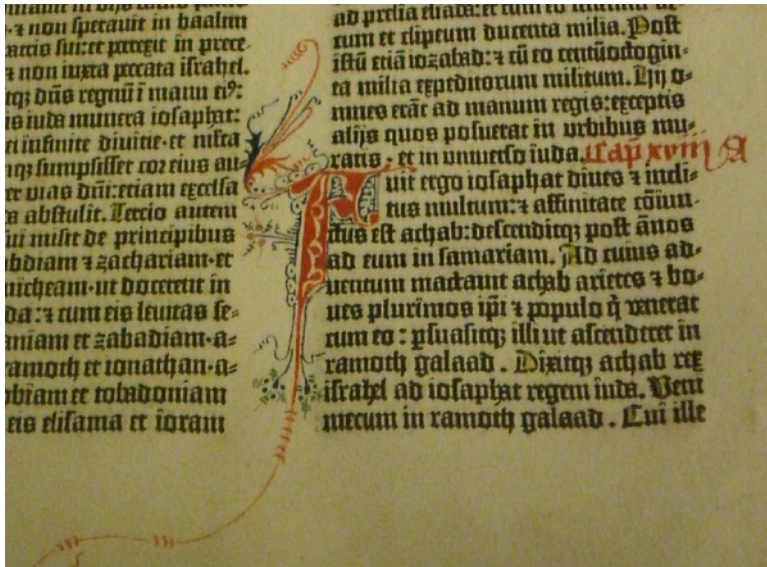 ⁊ non speravit in baalim
patris sui: et perrexit in prece-
⁊ non iuxta peccata israhel.
itqȝ dn̄s regnū ī manu eiꝰ:
is iuda munera iosaphat:
ei infinite divitie·et
mqȝ sumpsisset cor eius au-
er vias dn̄i: etiam excelsa
s abstulit. Tercio autem
ui misit de principibus
bdiam ⁊ zachariam·et
micheam·ut docerent in
da: ⁊ cum eis levitas se-
aniam et zabadiam·a-
amoth et ionathan·a-
obiam et tobadoniam
eis elisama et ioram
ad prelia eliada: et cum eo
cum et clipeum ducenta milia. Post
istū etiā iozabad: ⁊ cū eo centūoctogin-
ta milia expeditorum militum. Hij o-
mnes erāt ad manum regis: exceptis
alijs quos posuerat in urbibus mu-
ratis·et in universo iuda. Cap̄ xviij A
Fuit ergo iosaphat dives ⁊ incli-
tus multum: ⁊ affinitate cōiun-
ctus est achab: descenditqȝ post ānos
ad eum in samariam. Ad cuius ad-
ventum mactavit achab arietes ⁊ bo-
ves plurimos ip̄i ⁊ populo q̇ venerat
cum eo: ꝑsuasitqȝ illi ut ascenderet in
ramoth galaad. Dixitqȝ achab rex
israhel ad iosaphat regem iuda. Veni
mecum in ramoth galaad. Cui ille